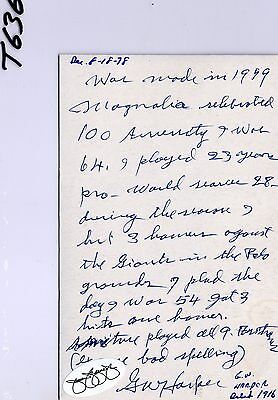 T636
Dec. 8-18-78
War made in 1949
Magnolia selebrated
100 Aniversty & War
64. I played 23 years
pro- World searce 28-
during the season I
hit 3 homers against
the Giants in the Polo
grounds I plad the
day I war 54 got 3
hits one homer.
played all 9.
bad spelling)
GW Harper
G.W.
HARPER
Debut 1916